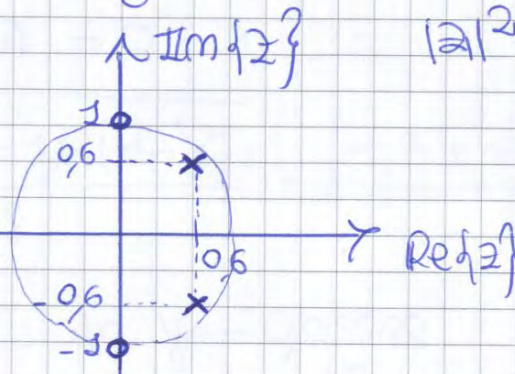 Im{z}
|z|²
1
0,6
0,6
Re{z}
-0,6
-1